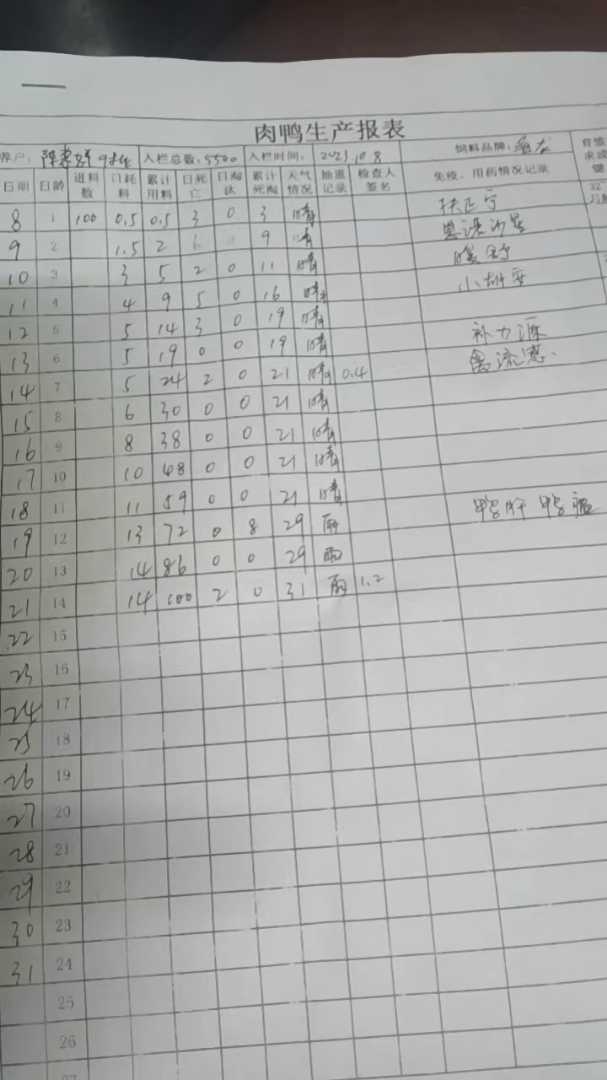 肉鸭生产报表
养户: 入栏总数: 5500 入栏时间: 2023.10.8 饲料品牌:
日期 日龄 进料数 日耗料 累计用料 日死亡 日淘汰 累计死淘 天气情况 抽重记录 检查人签名 免疫、用药情况记录
8 1 100 0.5 0.5 3 0 3 晴 扶正宁
9 2 1.5 2 6 9 晴
10 3 3 5 2 0 11 晴
11 4 4 9 5 0 16 晴
12 5 5 14 3 0 19 晴 补力源
13 6 5 19 0 0 19 晴 禽流感
14 7 5 24 2 0 21 晴 0.4
15 8 6 30 0 0 21 晴
16 9 8 38 0 0 21 晴
17 10 10 48 0 0 21 晴
18 11 11 59 0 0 21 晴
19 12 13 72 0 8 29 雨 鸭肝 鸭瘟
20 13 14 86 0 0 29 雨
21 14 14 100 2 0 31 雨 1.2
22 15
23 16
24 17
25 18
26 19
27 20
28 21
29 22
30 23
31 24
25
26
27